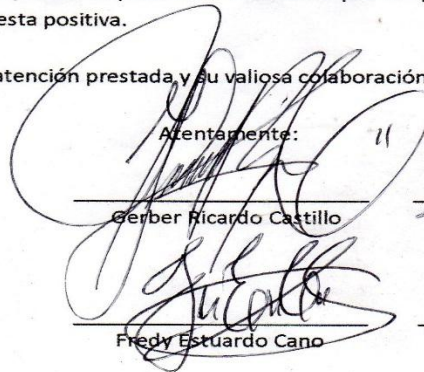 esta positiva.
atención prestada y su valiosa colaboración
Atentamente:
Gerber Ricardo Castillo
Fredy Estuardo Cano